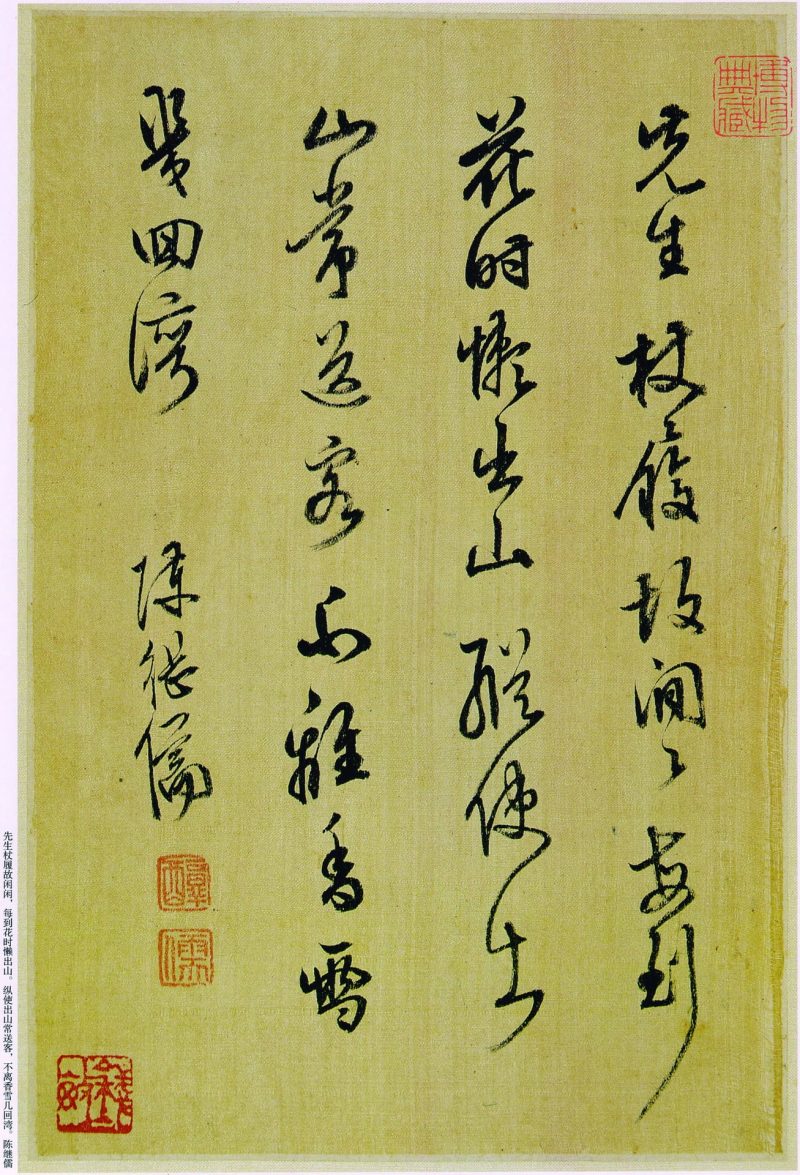 博物
典藏
先生杖履故閒々每到
花時懶出山縱使出
山常送客不離香雪
幾回灣 陳繼儒
醇
儒
先生杖履故闲闲，每到花时懒出山。纵使出山常送客，不离香雪几回湾。 陈继儒